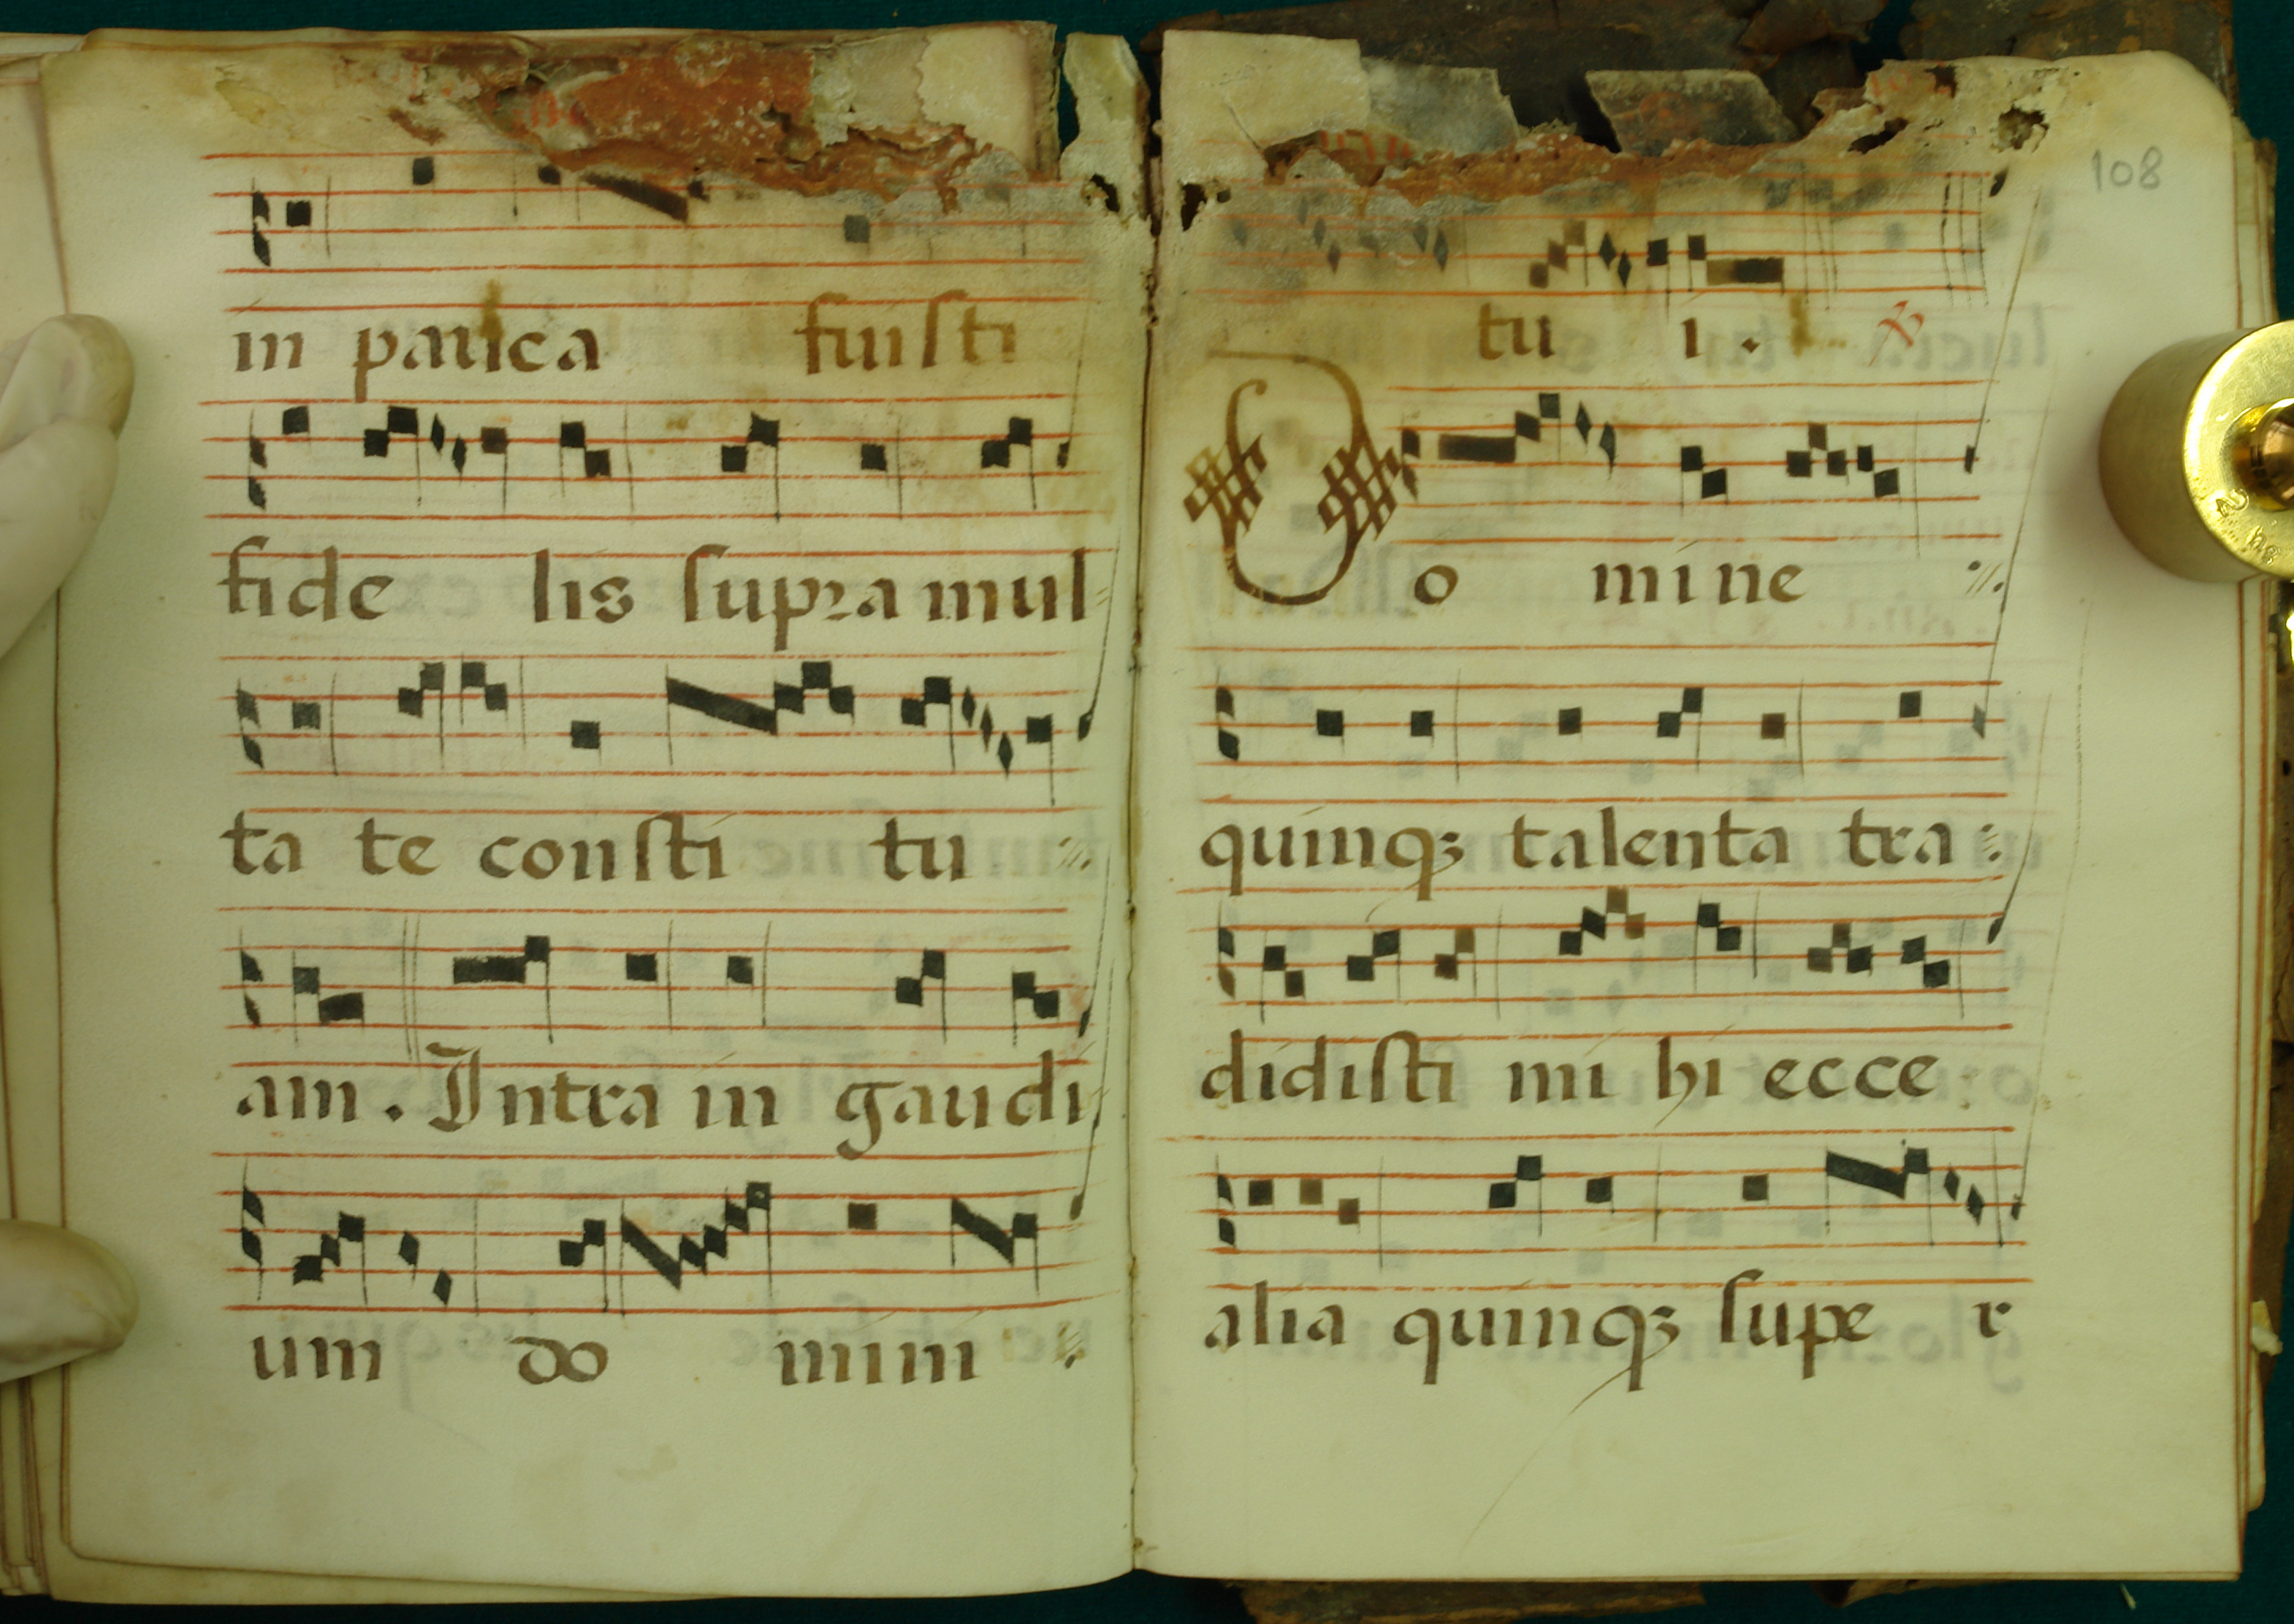 in pauca fuisti
fide lis supra mul
ta te consti tu
am. Intra in gaudi
um do mini
108
tu i. ℣
Domine
quinqꝫ talenta tra
didisti mi hi ecce
alia quinqꝫ supe r